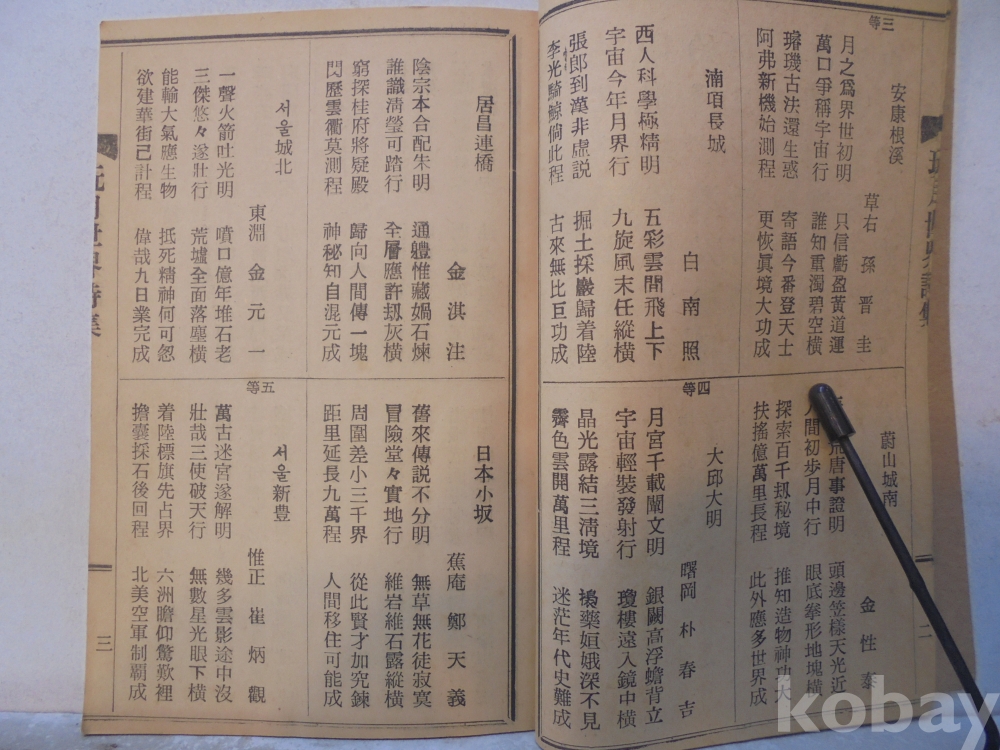 三等
安康根溪
草右 孫晋圭
月之爲界世初明 只信虧盈黃道運
萬口爭稱宇宙行 誰知重濁碧空橫
璿璣古法還生惑 寄語今番登天士
阿弗新機始測程 更恢眞境大功成
湳項長城
白南照
西人科學極精明 五彩雲間飛上下
宇宙今年月界行 九旋風末任縱橫
張郎到漢非虛説 掘土採巖歸着陸
李光騎鯨倘此程 古來無比巨功成
蔚山城南
金性泰
唐事證明 頭邊笠樣天光近
人間初歩月中行 眼底拳形地塊橫
探索百千刼秘境 推知造物神功大
扶搖億萬里長程 此外應多世界成
四等
大邱大明
曙岡 朴春吉
月宮千載闡文明 銀闕高浮蟾背立
宇宙輕裝發射行 瓊樓遠入鏡中橫
晶光露結三清境 搗藥姮娥深不見
霽色雲開萬里程 迷茫年代史難成
二
居昌連橋
金淇注
陰宗本合配朱明 通軆惟藏媧石煉
誰識清瑩可踏行 全層應許刼灰橫
窮探桂府將疑殿 歸向人間傳一塊
閃歷雲衢莫測程 神秘知自混元成
서울城北
東淵 金元一
一聲火箭吐光明 噴口億年堆石老
三傑悠々遂壯行 荒墟全面落塵橫
能輸大氣應生物 抵死精神何可忽
欲建華街已計程 偉哉九日業完成
日本小坂
蕉庵 鄭天義
舊來傳説不分明 無草無花徒寂寞
冒險堂々實地行 維岩維石露縱橫
周圍差小三千界 從此賢才加究鍊
距里延長九萬程 人間移住可能成
五等
서울新豊
惟正 崔炳觀
萬古迷宮遂解明 幾多雲影途中沒
壯哉三使破天行 無數星光眼下橫
着陸標旗先占界 六洲瞻仰驚歎裡
擔囊採石後回程 北美空軍制覇成
三
kobay